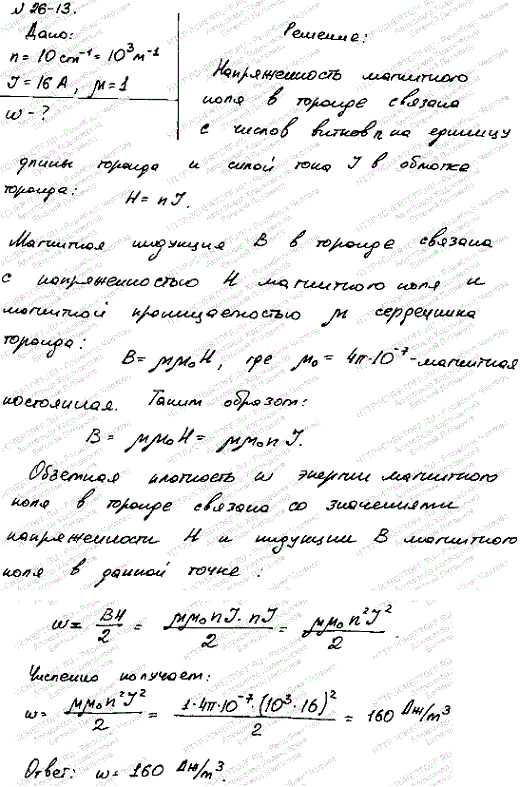 № 26-13.
Дано:
n = 10 cm⁻¹ = 10³ м⁻¹
I = 16 A, μ = 1
w - ?
Решение:
Напряженность магнитного
поля в тороиде связана
с числов витков n на единицу
длины тороида и силой тока I в обмотке
тороида: H = nI.
Магнитная индукция B в тороиде связана
с напряженностью H магнитного поля и
магнитной проницаемостью μ сердечника
тороида:
B = μμ₀H, где μ₀ = 4π·10⁻⁷ - магнитная
постоянная. Таким образом:
B = μμ₀H = μμ₀nI.
Объемная плотность w энергии магнитного
поля в тороиде связана со значениями
напряженности H и индукции B магнитного
поля в данной точке:
w = BH/2 = μμ₀nI·nI/2 = μμ₀n²I²/2.
Численно получаем:
w = μμ₀n²I²/2 = 1·4π·10⁻⁷·(10³·16)²/2 = 160 Дж/m³
Ответ: w = 160 Дж/m³.